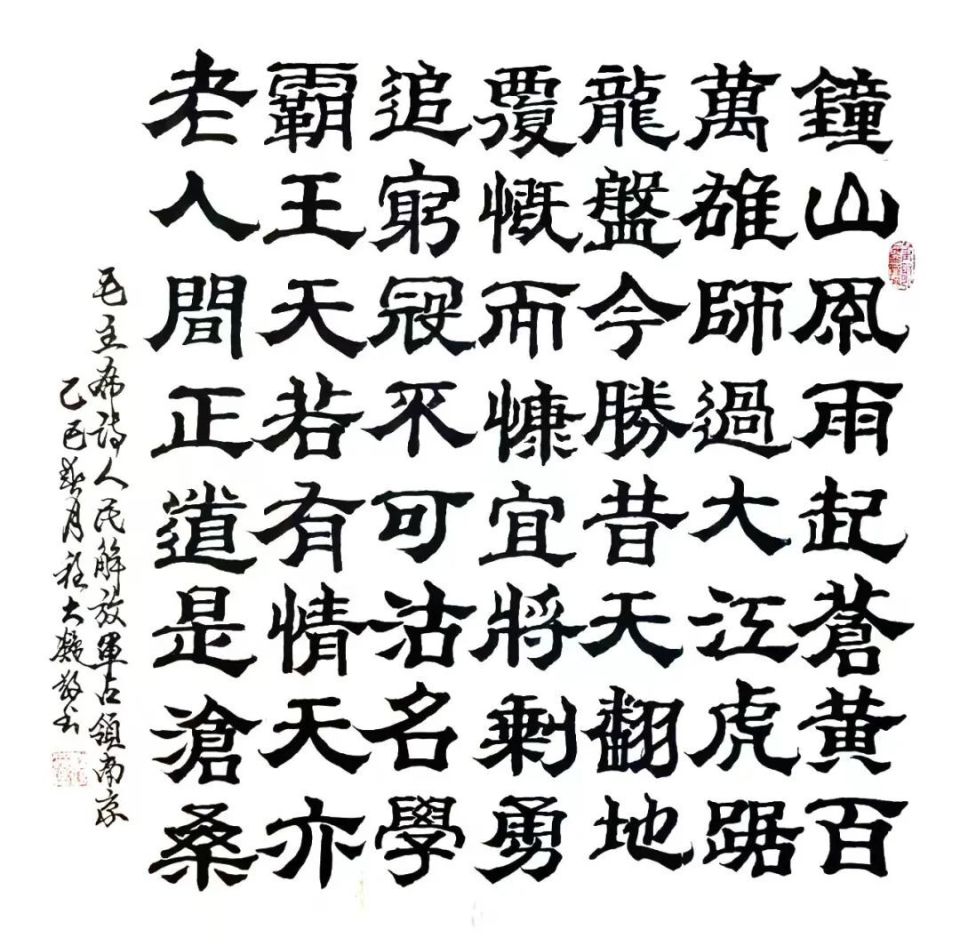 鐘山風雨起蒼黃百
萬雄師過大江虎踞
龍盤今勝昔天翻地
覆慨而慷宜將剩勇
追窮寇不可沽名學
霸王天若有情天亦
老人間正道是滄桑
毛主席詩人民解放軍占領南京
乙巳春月程大凝敬书